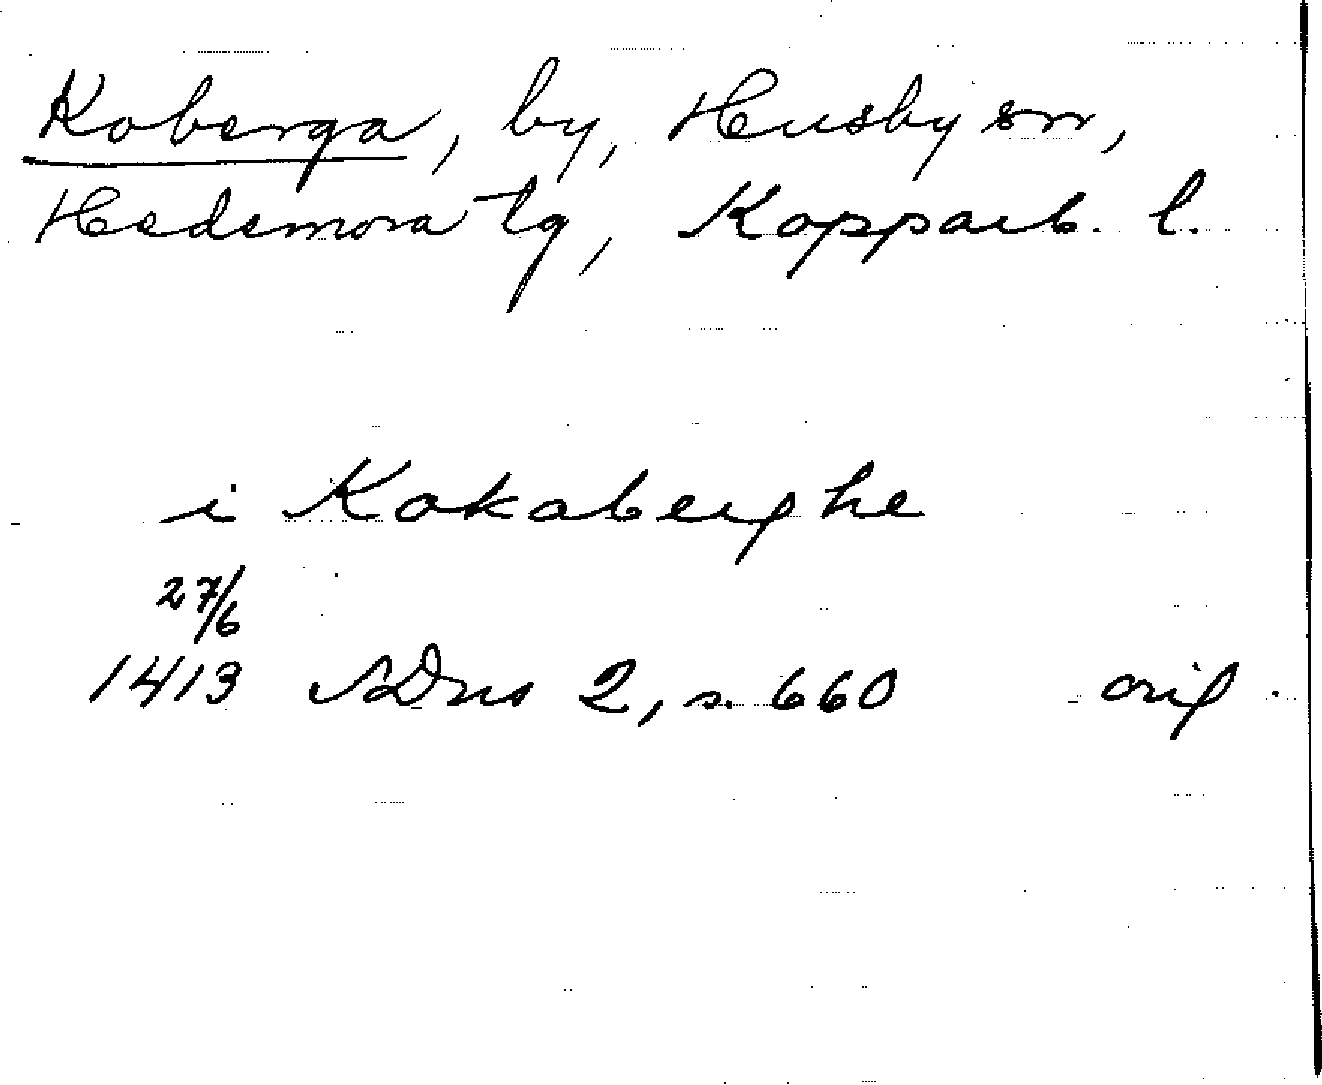 Koberga, by, Husby sn,
Hedemora tg, Kopparb. l.
i Kakaberghe
27/6
1413 SDns 2, s. 660 orig.